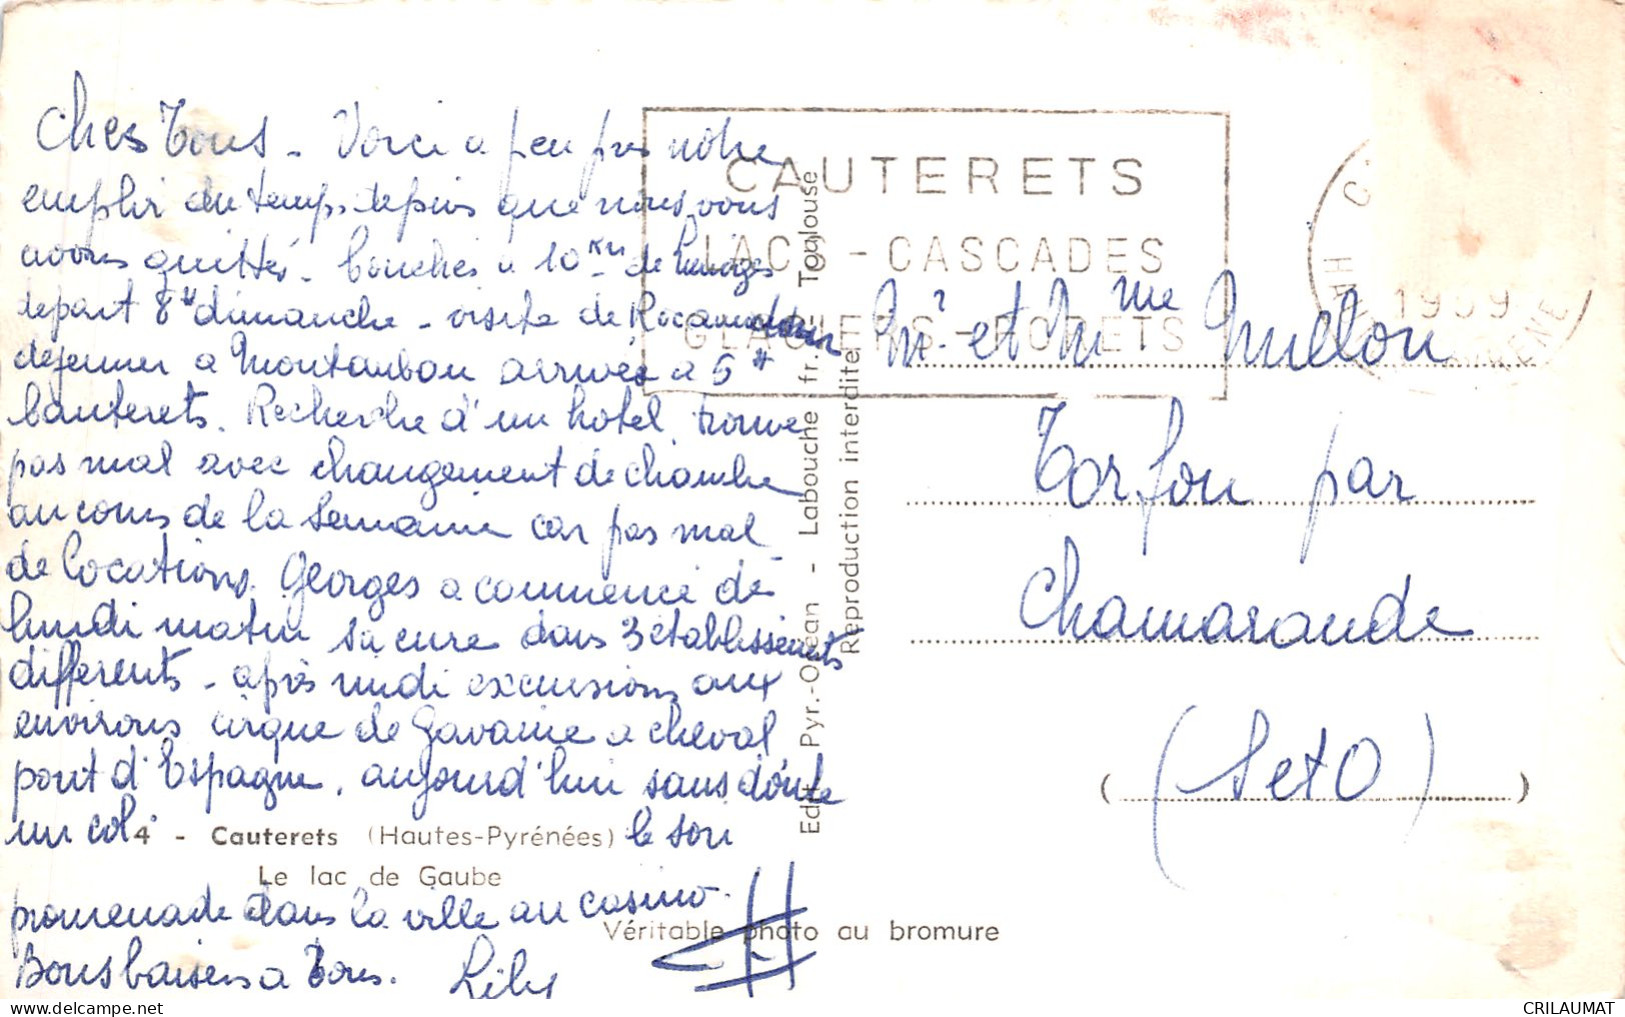 Chers Tous - Voici a peu pres notre
emploi du temps depuis que nous vous
avons quittés - couchés à 10 km de Limoges
depart 8H dimanche - visite de Rocamadour
dejeuner a Montauban arrivés a 5H
Cauterets. Recherche d'un hotel trouvé
pas mal avec changement de chambre
au cours de la semaine car pas mal
de locations. Georges a commencé dès
lundi matin sa cure dans 3 établissements
differents - après midi excursions aux
environs cirque de Gavarnie a cheval
pont d'Espagne, aujourd'hui sans doute
un col. le soir
promenade dans la ville au casino.
Bons baisers a Tous. Lily
4 - Cauterets (Hautes-Pyrénées)
Le lac de Gaube
Véritable photo au bromure
Edit. Pyr.-Océan - Labouche fr. Toulouse
Reproduction interdite
CAUTERETS
LACS - CASCADES
GLACIERS - FORETS
1959
Mr et Mme Millou
Torfou par
Chamarande
(S et O)
CRILAUMAT